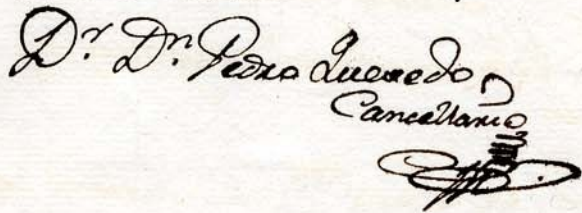 Dr. Dn. Pedro Quevedo
Cancellario